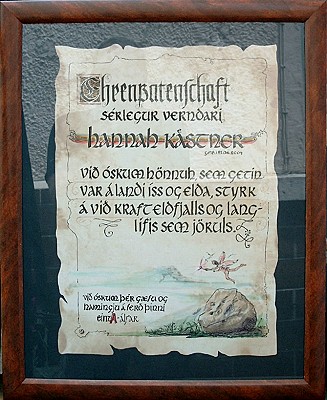 Ehrenpatenschaft
sérlegur verndari
hannah kästner
við óskum hönnuh, sem getin
var á landi íss og elda, styrk
á við kraft eldfjalls og lang-
lífis sem jökuls.
við óskum þér gæfu og
hamingju á ferð þinni